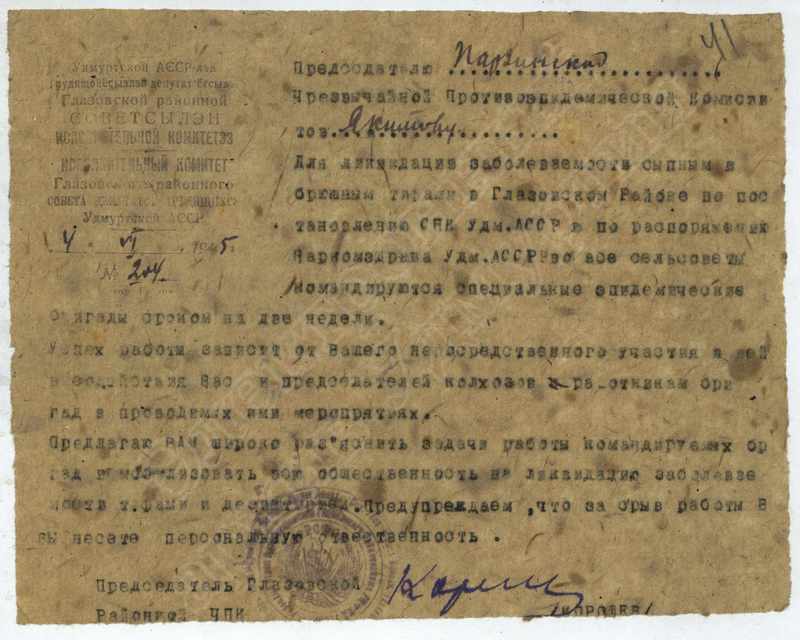 41
Удмуртской АССР-лэн
Глазовской районной
СОВЕТСЫЛЭН
ИСПОЛНИТЕЛЬНОЙ КОМИТЕТЭЗ
ИСПОЛНИТЕЛЬНЫЙ КОМИТЕТ
Глазовского районного
СОВЕТА ДЕПУТАТОВ ТРУДЯЩИХСЯ
Удмуртской АССР
4 VI 1945.
№ 204
Председателю Парзинской
Чрезвычайной Противоэпидемической Комиссии
тов. Якимову
Для ликвидации заболеваемости сыпным и
брюшным тифами в Глазовском Районе по пос
тановлению СНК Удм.АССР и по распоряжению
Наркомздрава Удм.АССР во все сельсоветы
командируются специальные эпидемические
бригады сроком на две недели.
Успех работы зависит от Вашего непосредственного участия в ней
и содействия Вас и председателей колхозов работникам бри
гад в проводимых ими меропрятиях.
Предлагаю ВАМ широко раз"яснить задачи работы командируемых бр
гад и мобилизовать всю общественность на ликвидацию заболевае
мости тифами и дезинтерией. Предупреждаем, что за срыв работы В
вы несете персональную ответственность.
Председатель Глазовской
Районной ЧПК /КОРОТАЕВ/